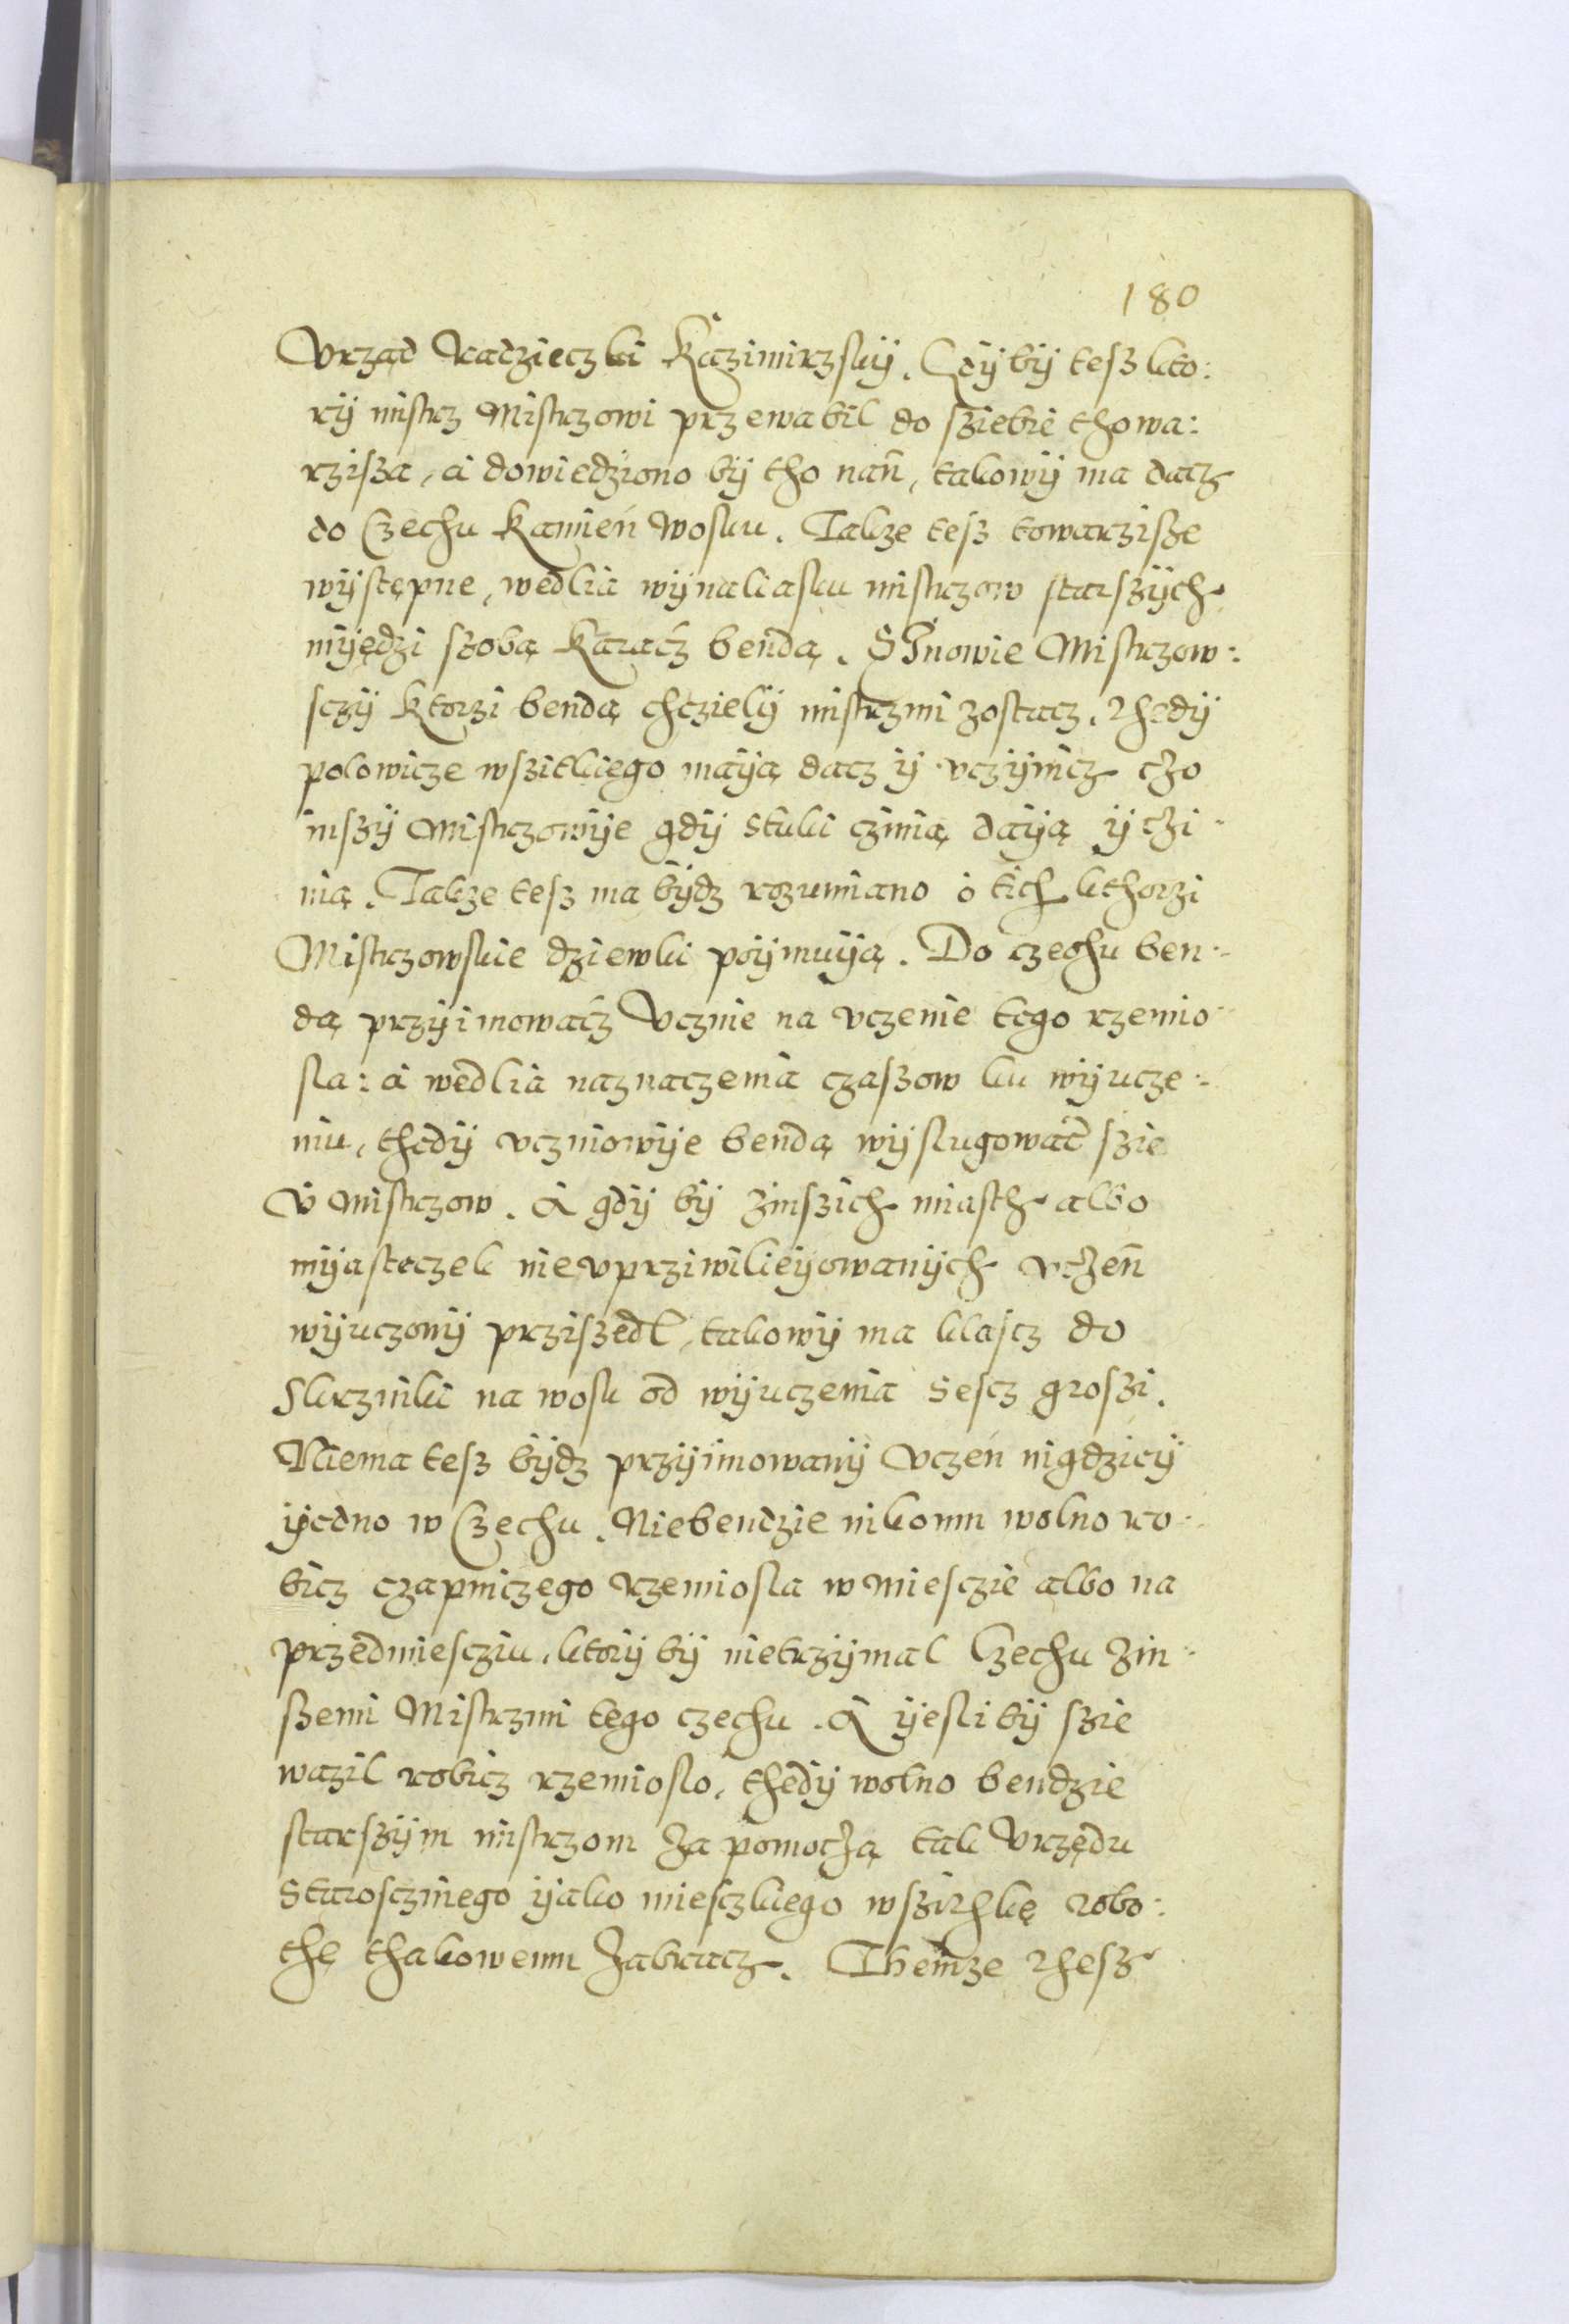 180
Vrząd Radzieczki Kazimirzsky. Gdÿ bÿ tesz kto:
rÿ mistrz Mistrzowi przewabil do sziebie thowa:
rzisza, á dowiedziono bÿ tho nań, takowÿ ma dacz
do Czechu Kamień wosku. Takze tesz towarzisze
wÿstępne, wedlia wÿnaliasku mistrzow starszÿch
mÿędzi szobą Karacz bendą. Sÿnowie Mistrzow:
sczÿ Ktorzi bendą chczielÿ mistrzmi zostacz, thedÿ
polowicze wszitkiego maÿą dacz ÿ vczÿnicz czo
inszÿ Mistrzowÿe gdÿ stuki czinią daÿą ÿ czi
nią. Takze tesz ma bÿdz rozumiano o tich kthorzi
Mistrzowskie dziewki poÿmuÿą. Do czechu ben
dą przÿimowacz Vcznie na vczenie tego rzemio
sla: á wedlia naznaczenia czaszow ku wÿucze
niu, thedÿ vczniowÿe bendą wÿslugowac szie
V Mistrzow. A gdÿ bÿ zinszich miasth albo
mÿasteczek nievprziwiliejowanÿch vczeń
wÿuczonÿ prziszedl, takowÿ ma klascz do
Skrzinki na wosk od wÿuczenia sescz groszi.
Niema tesz bÿdz przÿimowanÿ Vczen nigdzieÿ
ÿedno w Czechu. Niebendzie nikomu wolno ro
bicz czapniczego rzemiosla w miesczie albo na
przedmiescziu, ktorÿ bÿ nietrzÿmal Czechu zin
szemi Mistrzmi tego czechu. A ÿesli bÿ szie
wazil robicz rzemioslo, thedÿ wolno bendzie
starszÿm mistrzom za pomoczą tak Vrzędu
Starosczinego ÿako miesczkiego wszithkę robo:
thę thakowemu zabracz. Themze thesz